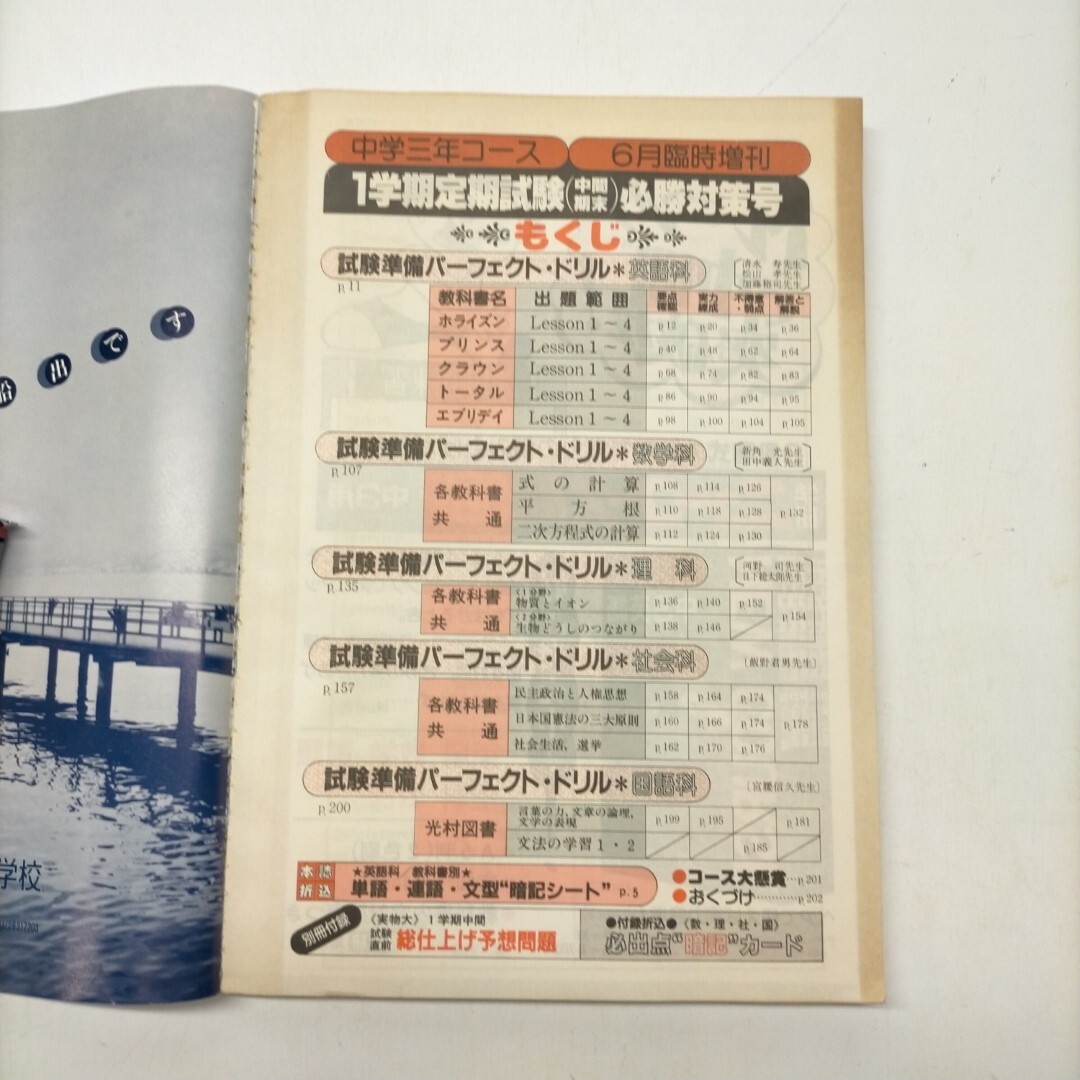 船出です
学校
中学三年コース 6月臨時増刊
1学期定期試験(中間 期末)必勝対策号
もくじ
試験準備パーフェクト・ドリル*英語科
清水 寿先生
松山 孝先生
加藤裕司先生
p.11
教科書名 出題範囲 要点確認 実力錬成 不得意・弱点 解答と解説
ホライズン Lesson 1～4 p.12 p.20 p.34 p.36
プリンス Lesson 1～4 p.40 p.48 p.62 p.64
クラウン Lesson 1～4 p.68 p.74 p.82 p.83
トータル Lesson 1～4 p.86 p.90 p.94 p.95
エブリデイ Lesson 1～4 p.98 p.100 p.104 p.105
試験準備パーフェクト・ドリル*数学科
新角 光先生
田中義人先生
p.107
各教科書共通
式の計算 p.108 p.114 p.126
平方根 p.110 p.118 p.128 p.132
二次方程式の計算 p.112 p.124 p.130
試験準備パーフェクト・ドリル*理科
河野 司先生
日下総太郎先生
p.135
各教科書共通
〈1分野〉
物質とイオン p.136 p.140 p.152 p.154
〈2分野〉
生物どうしのつながり p.138 p.146
試験準備パーフェクト・ドリル*社会科
飯野君男先生
p.157
各教科書共通
民主政治と人権思想 p.158 p.164 p.174
日本国憲法の三大原則 p.160 p.166 p.174 p.178
社会生活，選挙 p.162 p.170 p.176
試験準備パーフェクト・ドリル*国語科
宮腰信久先生
p.200
光村図書
言葉の力，文章の論理，
文学の表現 p.199 p.195 p.181
文法の学習1・2 p.185
本誌折込
★英語科／教科書別★
単語・連語・文型“暗記シート” p.5
●コース大懸賞…p.201
●おくづけ…………p.202
別冊付録
〈実物大〉1学期中間
試験直前 総仕上げ予想問題
●付録折込●〈数・理・社・国〉
必出点“暗記”カード